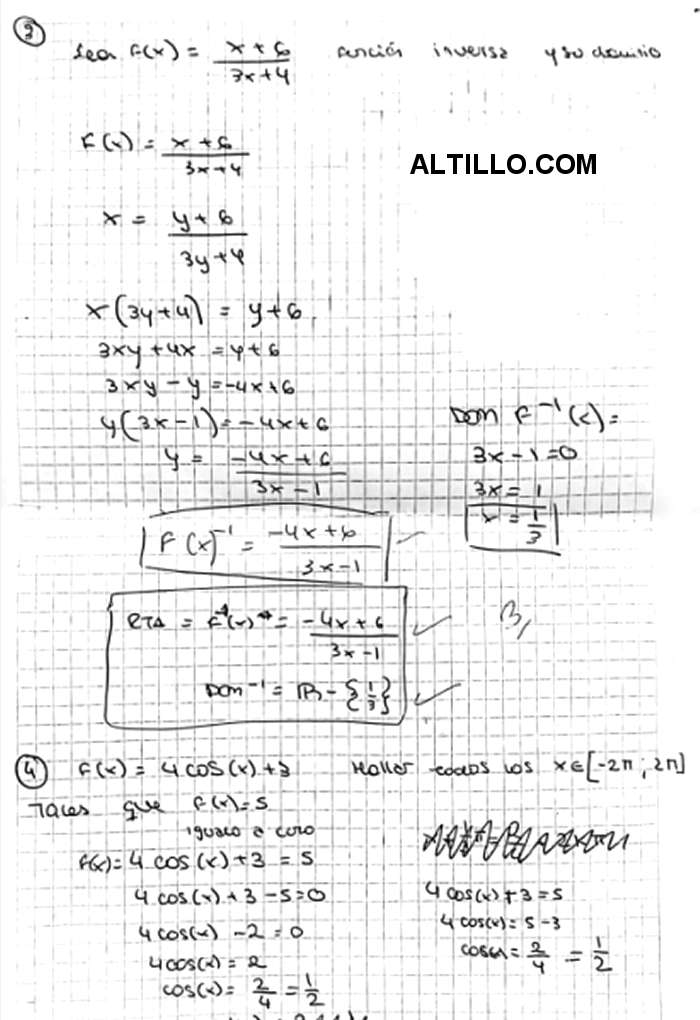 3
Sea F(x) = x + 6 / 3x + 4 función inversa y su dominio
F(x) = x + 6 / 3x + 4
ALTILLO.COM
x = y + 6 / 3y + 4
x(3y+4) = y+6
3xy + 4x = y + 6
3xy - y = -4x + 6
y(3x - 1) = -4x + 6
y = -4x + 6 / 3x - 1
Dom F⁻¹(x) =
3x - 1 = 0
3x = 1
x = 1/3
F(x)⁻¹ = -4x + 6 / 3x - 1
RTA = F⁻¹(x) = -4x + 6 / 3x - 1
B
Dom⁻¹ = R - {1/3}
4 F(x) = 4 cos(x) + 3 Hallar todos los x ∈ [-2π ; 2π]
Tales que F(x) = 5
igualo a cero
F(x) = 4 cos(x) + 3 = 5
4 cos(x) + 3 - 5 = 0
4 cos(x) - 2 = 0
4 cos(x) = 2
cos(x) = 2/4 = 1/2
4 cos(x) + 3 = 5
4 cos(x) = 5 - 3
cos(x) = 2/4 = 1/2